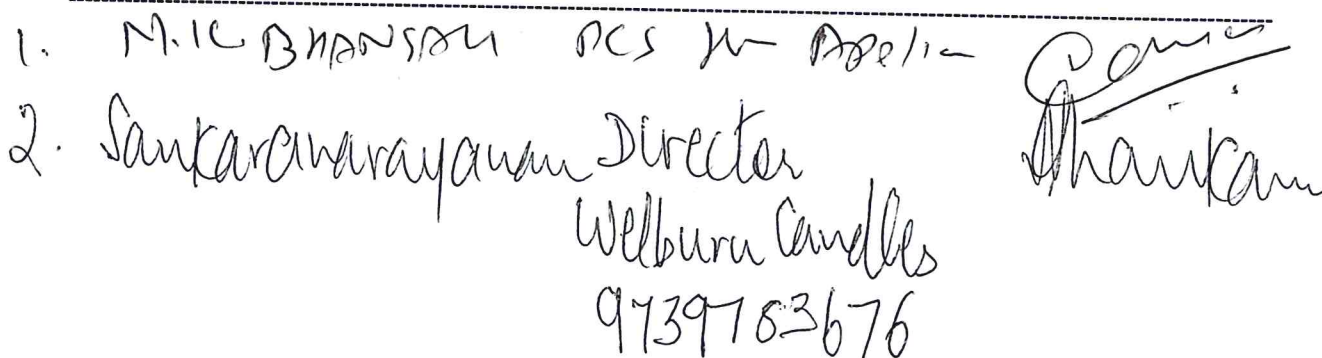 1. M.K BHANSALI PCS for
2. Sankaranarayanan Director
Welburn Candles
9739783676